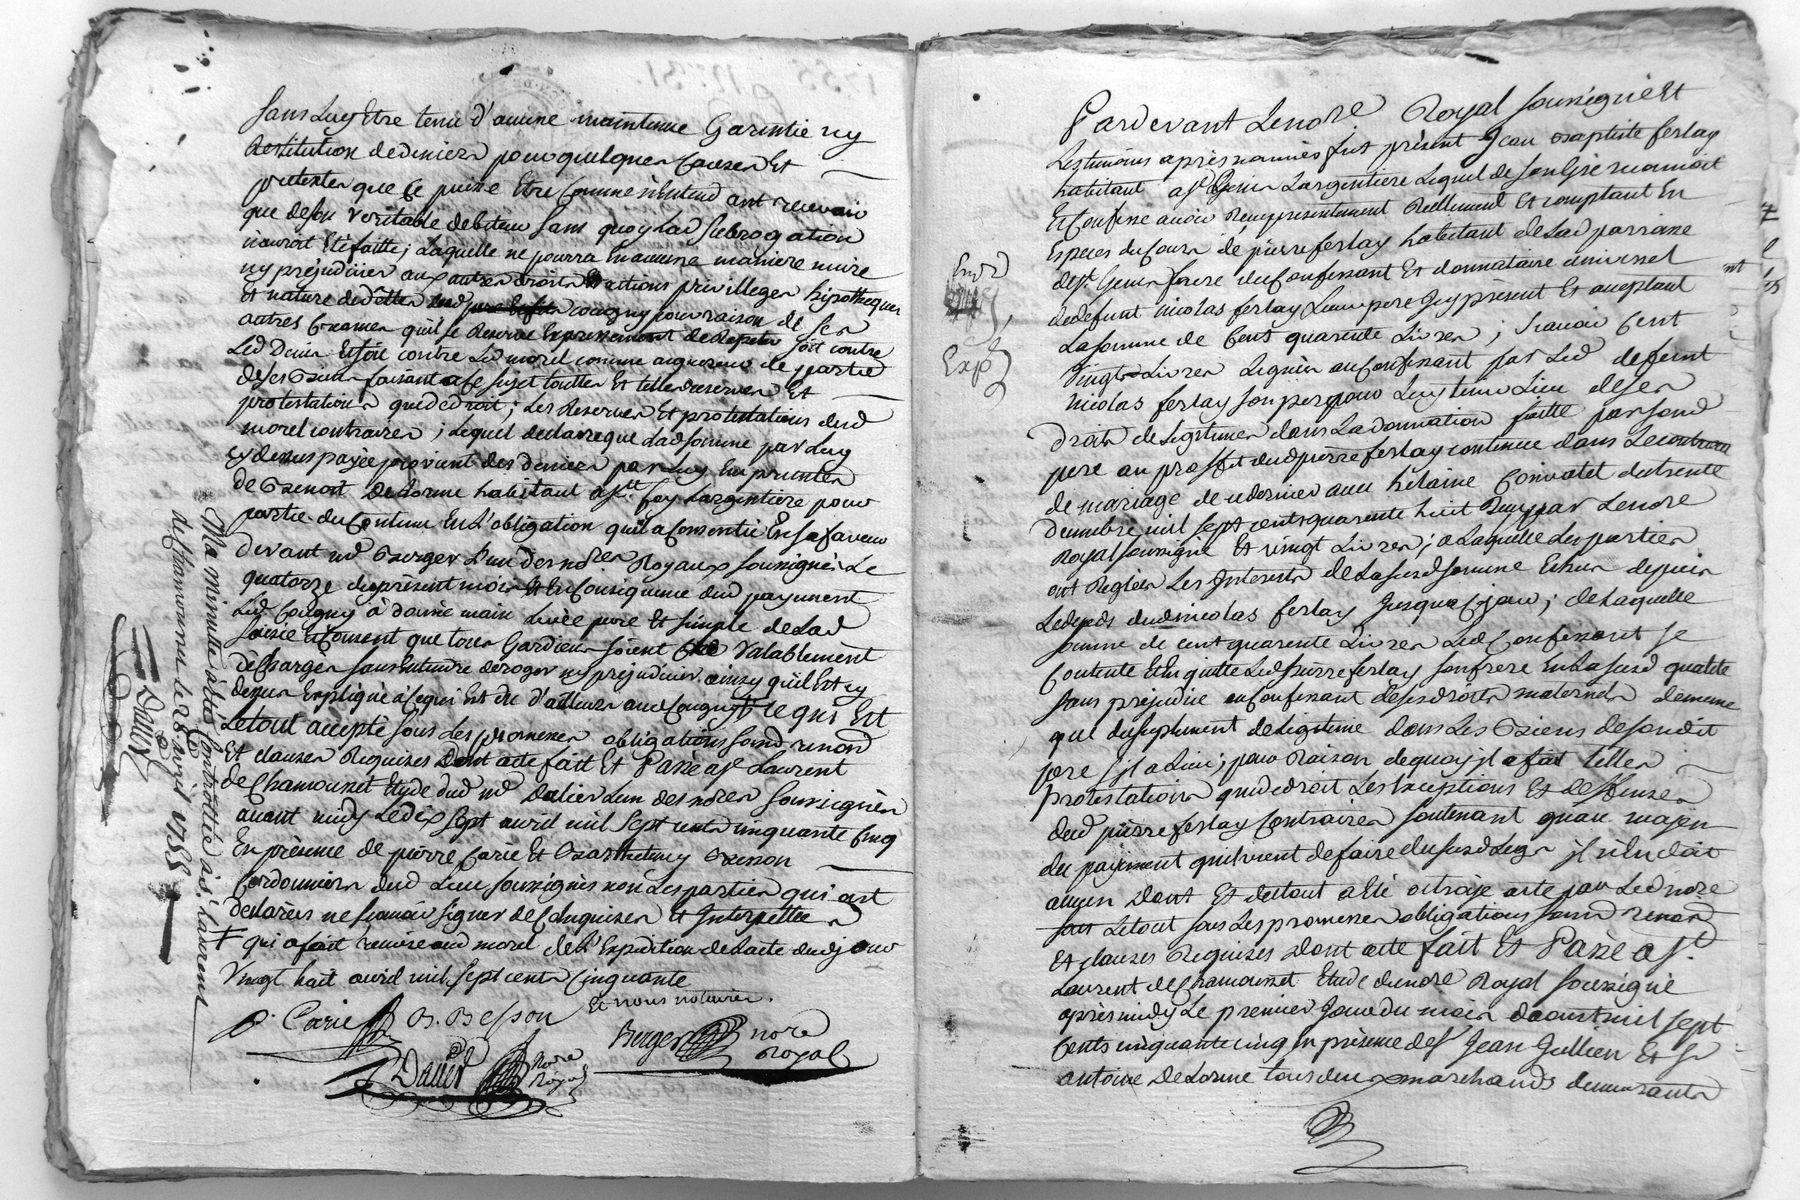 sans luy Etre tenu d'aucune maintenue Garentie ny
Restitution de deniers pour quelques Causes Et
pretextes que Ce puisse Etre Comme n'Entendant recevoir
que de son veritable debiteur sans quoy lad subrogation
n'auroit Eté faitte; Laquelle ne pourra En aucune maniere nuire
ny prejudicier aux autres droits actions privilleges hipotheques
Et nature de dettes dud Cougny pour raison de ses
autres Creances qu'il se Reserve Expressement de Repeter soit contre
Led Denis Et soit contre Led morel comme acquereur de partie
de ses Biens faisant a Ce sujet touttes Et telles reserves Et
protestations que de droit; Les Reserves Et protestations dud
morel contraires; Lequel declare que lad somme par Luy
cy dessus payée provient des deniers par Luy Empruntés
de Benoit Delorme habitant a Ste foy Largentiere pour
partie du Contenu En L'obligation qu'il a Consentie En sa faveur
devant me Berger L'un des nores Royaux soussignés Le
quatorze du present mois Et En Consequence dud payement
Led Cougny à donné main Levée pure Et simple de Lad
saisie Et Consent que tous Gardiens soient valablement
dechargés sans Entendre deroger ny prejudicier ainsy qu'il Est cy
dessus Expliqué à Ce qui Est du d'ailleurs aud Cougny ╪ Ce qui Est
Le tout accepté sous Les promesses obligations soumd renond
Et clauses Requises Dont acte fait Et Passé a St Laurent
de Chamousset Etude dud me Dalier L'un des nores soussignés
avant midy Le dix sept avril mil sept cents cinquante Cinq
En presence de pierre Carié Et Barthelmy Besson
Cordonniers dud Lieu soussignés non Les parties qui ont
declarés ne sçavoir signer de Ce Enquises Et Interpellées
╪ qui a fait remise aud morel de L'Expedition de L'acte dudjour
Vingt huit avril mil sept cents Cinquante
Et nous notaires.
P. Carié B. Besson
Berger nore
Royal
Dalier nore
Royal
Ma minutte a été Controllée à St Laurent
de Chamousset le 28 avril 1755
Dalier
Exp
Par devant Le nore Royal soussigné Et
Les temoins après nommés fut présent Jean Baptiste ferlay
habitant a St Genis Largentiere Lequel de son Gré reconnoit
Et Confesse avoir Reçu presentement Reellement Et comptant En
Especes du Cours de pierre ferlay habitant de Lad parroisse
de St Genis frere du Confessant Et donnataire universel
de defunt nicolas ferlay Leur pere Icy présent Et aceptant
La somme de Cent quarente Livres; sçavoir Cent
Vingt Livres Leguées au Confessant par Led defunt
nicolas ferlay son pere pour Luy tenir Lieu de ses
droits de Legitimes dans La donnation faitte par sond
pere au proffit dud pierre ferlay contenue dans Le contrat
de mariage de ce dernier avec helaine Convatet du trente
decembre mil sept cents quarente huit Reçu par Le nore
Royal soussigné Et vingt Livres; a Laquelle Les parties
ont Reglés Les Interests de La susd somme Echus depuis
Le deçeds dud nicolas ferlay Jusques à Ce jour; de Laquelle
somme de cent quarente Livres Led Confessant se
Contente Et En quitte Led pierre ferlay son frere En La susd qualité
sans prejudice au Confessant de ses droits maternels de meme
que du suplement de Legitime dans Les Biens de sondit
pere s'il a Lieu; pour Raison de quoy il a fait telles
protestations que de droit Les Exceptions Et deffenses
dud pierre ferlay Contraires soutenant qu'au moyen
du payement qu'il vient de faire du susd Legs il n'En doit
aucun Dont Et du tout a Eté octroyé acte par Led nore
Le tout sous Les promesses obligations soumd renond
Et clauses Requises Dont acte fait Et Passé a St
Laurent de Chamousset Etude du nore Royal soussigné
après midy Le premier Jour du mois d'aoust mil sept
Cents cinquante cinq En présence de Sr Jean Jullien Et Sr
antoine Delorme tous deux marchands demeurants